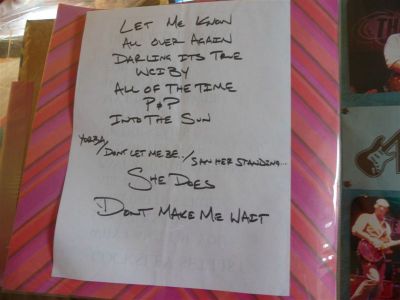 LET ME KNOW
ALL OVER AGAIN
DARLING ITS TRUE
WCIBY
ALL OF THE TIME
P&P
INTO THE SUN
YORBA/DONT LET ME BE../SAW HER STANDING...
SHE DOES
DONT MAKE ME WAIT